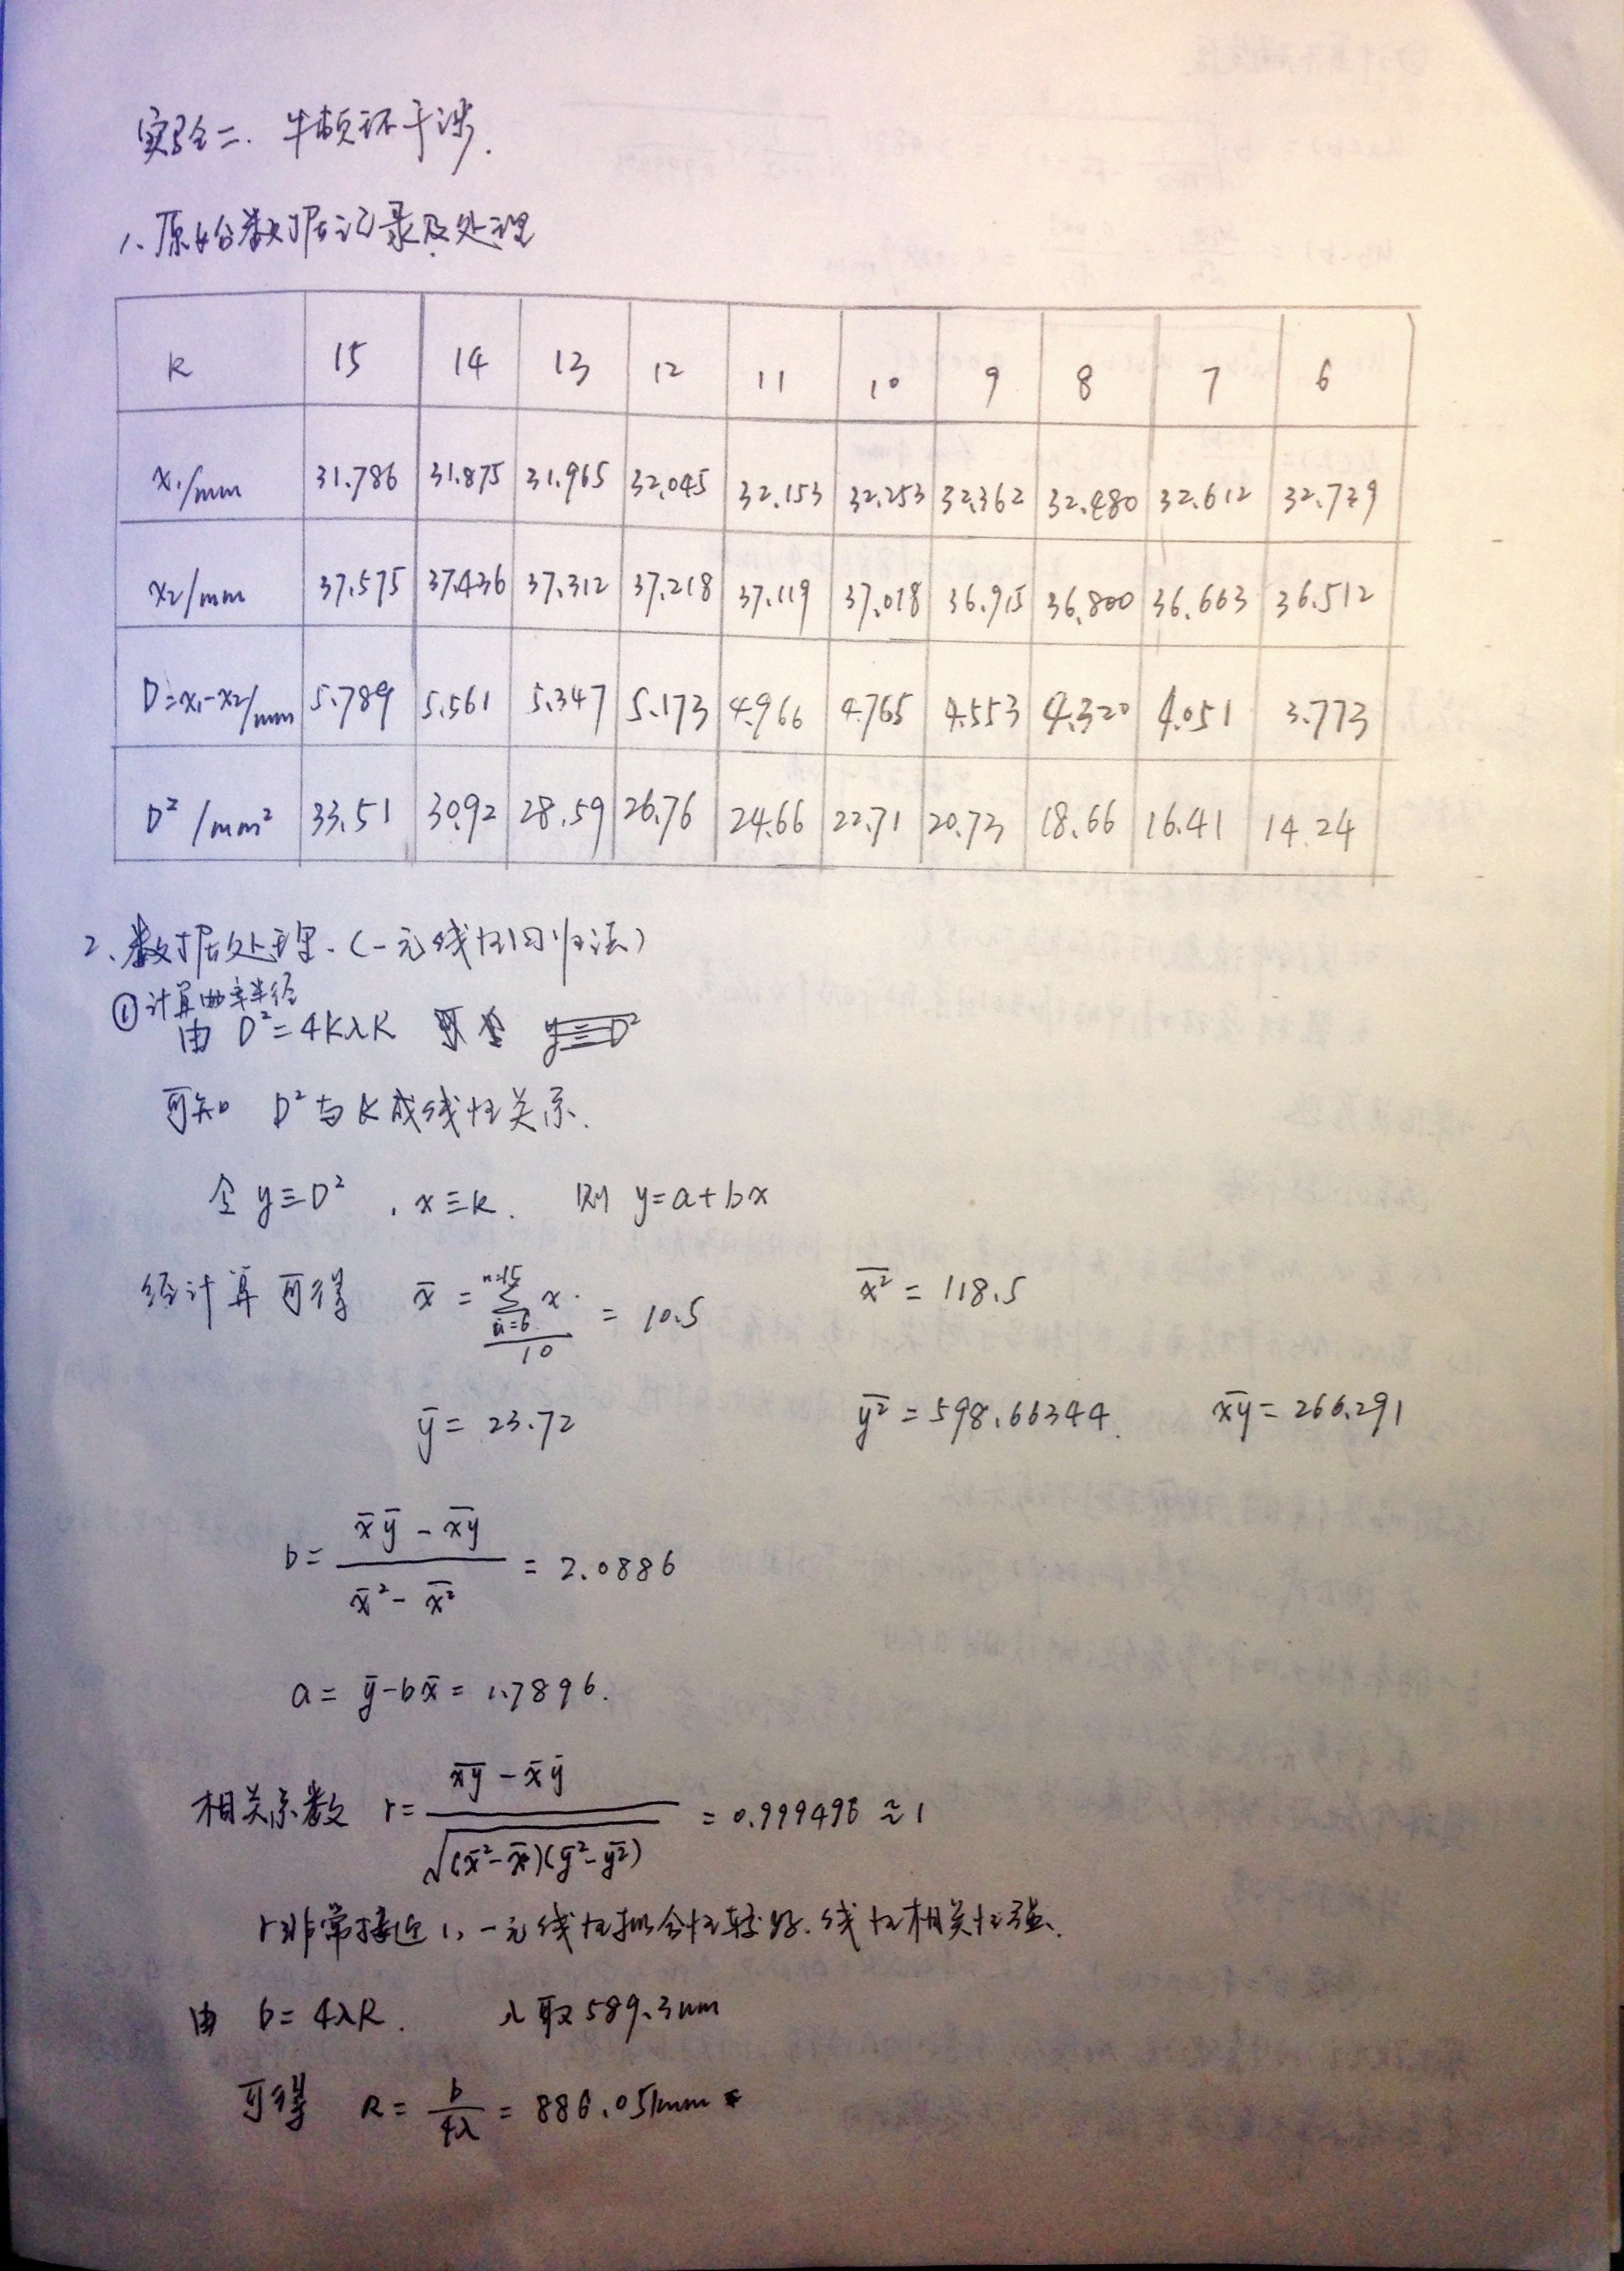 实验二. 牛顿环干涉.
1、原始数据记录及处理
k 15 14 13 12 11 10 9 8 7 6
x₁/mm 31.786 31.875 31.965 32.045 32.153 32.253 32.362 32.480 32.612 32.739
x₂/mm 37.575 37.436 37.312 37.218 37.119 37.018 36.915 36.800 36.663 36.512
D=x₁-x₂/mm 5.789 5.561 5.347 5.173 4.966 4.765 4.553 4.320 4.051 3.773
D² /mm² 33.51 30.92 28.59 26.76 24.66 22.71 20.73 18.66 16.41 14.24
2、数据处理.(一元线性回归法)
①计算曲率半径
由 D²=4KλR
可知 D²与K成线性关系.
令 y≡D² , x≡k. 则 y=a+bx
经计算可得 x̄ = (∑ x)/10 = 10.5 \overline{x²} = 118.5
ȳ = 23.72 \overline{y²} = 598.66344. \overline{xy} = 266.291
b = (x̄ȳ - \overline{xy})/(x̄² - \overline{x²}) = 2.0886
a = ȳ-bx̄ = 1.7896.
相关系数 r = (\overline{xy} - x̄ȳ)/√((x̄²-\overline{x²})(ȳ²-\overline{y²})) = 0.999498 ≈ 1
r非常接近1, 一元线性拟合性较好. 线性相关性强.
由 b=4λR. λ取589.3nm
可得 R = b/4λ = 886.051mm